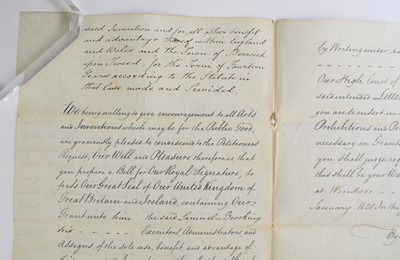 said Invention and for all other benefit
and advantage thereof within England
and Wales and the Town of Berwick
upon Tweed, for the Term of Fourteen
Years according to the Statute in
that Case made and Provided.
We being willing to give encouragement to all Arts
and Inventions which may be for the Public Good,
are graciously pleased to condescend to the Petitioners
Request, Our Will and Pleasure therefore is, that
you prepare a Bill for Our Royal Signature, to
pass Our Great Seal of Our United Kingdom of
Great Britain and Ireland, containing Our
Grant unto him the said Samuel Brooking
his Executors Administrators and
Assigns, of the sole use, benefit and advantage of
by Writing under
Our High Court of
said intended Letters
you are to insert in
Prohibitions and
necessary, in Grants
you shall judge
this shall be your
at Windsor
January 1828 In the
By